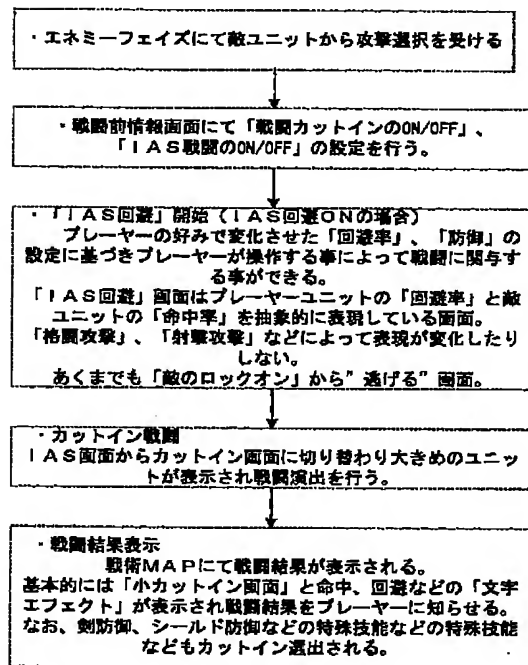 ・エネミーフェイズにて敵ユニットから攻撃選択を受ける
・戦闘前情報画面にて「戦闘カットインのON/OFF」、
「IAS戦闘のON/OFF」の設定を行う。
・「IAS回避」開始（IAS回避ONの場合）
プレーヤーの好みで変化させた「回避率」、「防御」の
設定に基づきプレーヤーが操作する事によって戦闘に関与す
る事ができる。
「IAS回避」画面はプレーヤーユニットの「回避率」と敵
ユニットの「命中率」を抽象的に表現している画面。
「格闘攻撃」、「射撃攻撃」などによって表現が変化したり
しない。
あくまでも「敵のロックオン」から”逃げる”画面。
・カットイン戦闘
IAS画面からカットイン画面に切り替わり大きめのユニッ
トが表示され戦闘演出を行う。
・戦闘結果表示
戦術MAPにて戦闘結果が表示される。
基本的には「小カットイン画面」と命中、回避などの「文字
エフェクト」が表示され戦闘結果をプレーヤーに知らせる。
なお、剣防御、シールド防御などの特殊技能などの特殊技能
などもカットイン選出される。